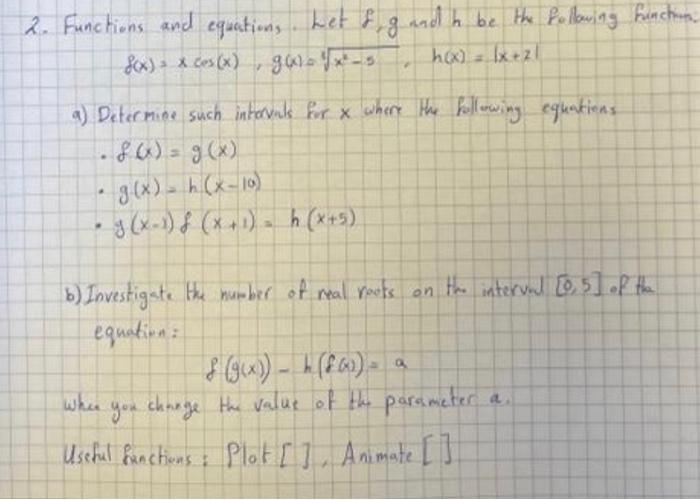 2. Functions and equations. Let f, g and h be the following function
f(x) = x cos(x) , g(x) = ∛(x²-5) , h(x) = |x+2|
a) Determine such intervals for x where the following equations
• f(x) = g(x)
• g(x) = h(x-10)
• g(x-1) f(x+1) = h(x+5)
b) Investigate the number of real roots on the interval [0,5] of the
equation:
f(g(x)) - h(f(x)) = a
when you change the value of the parameter a.
Useful functions: Plot[], Animate[]